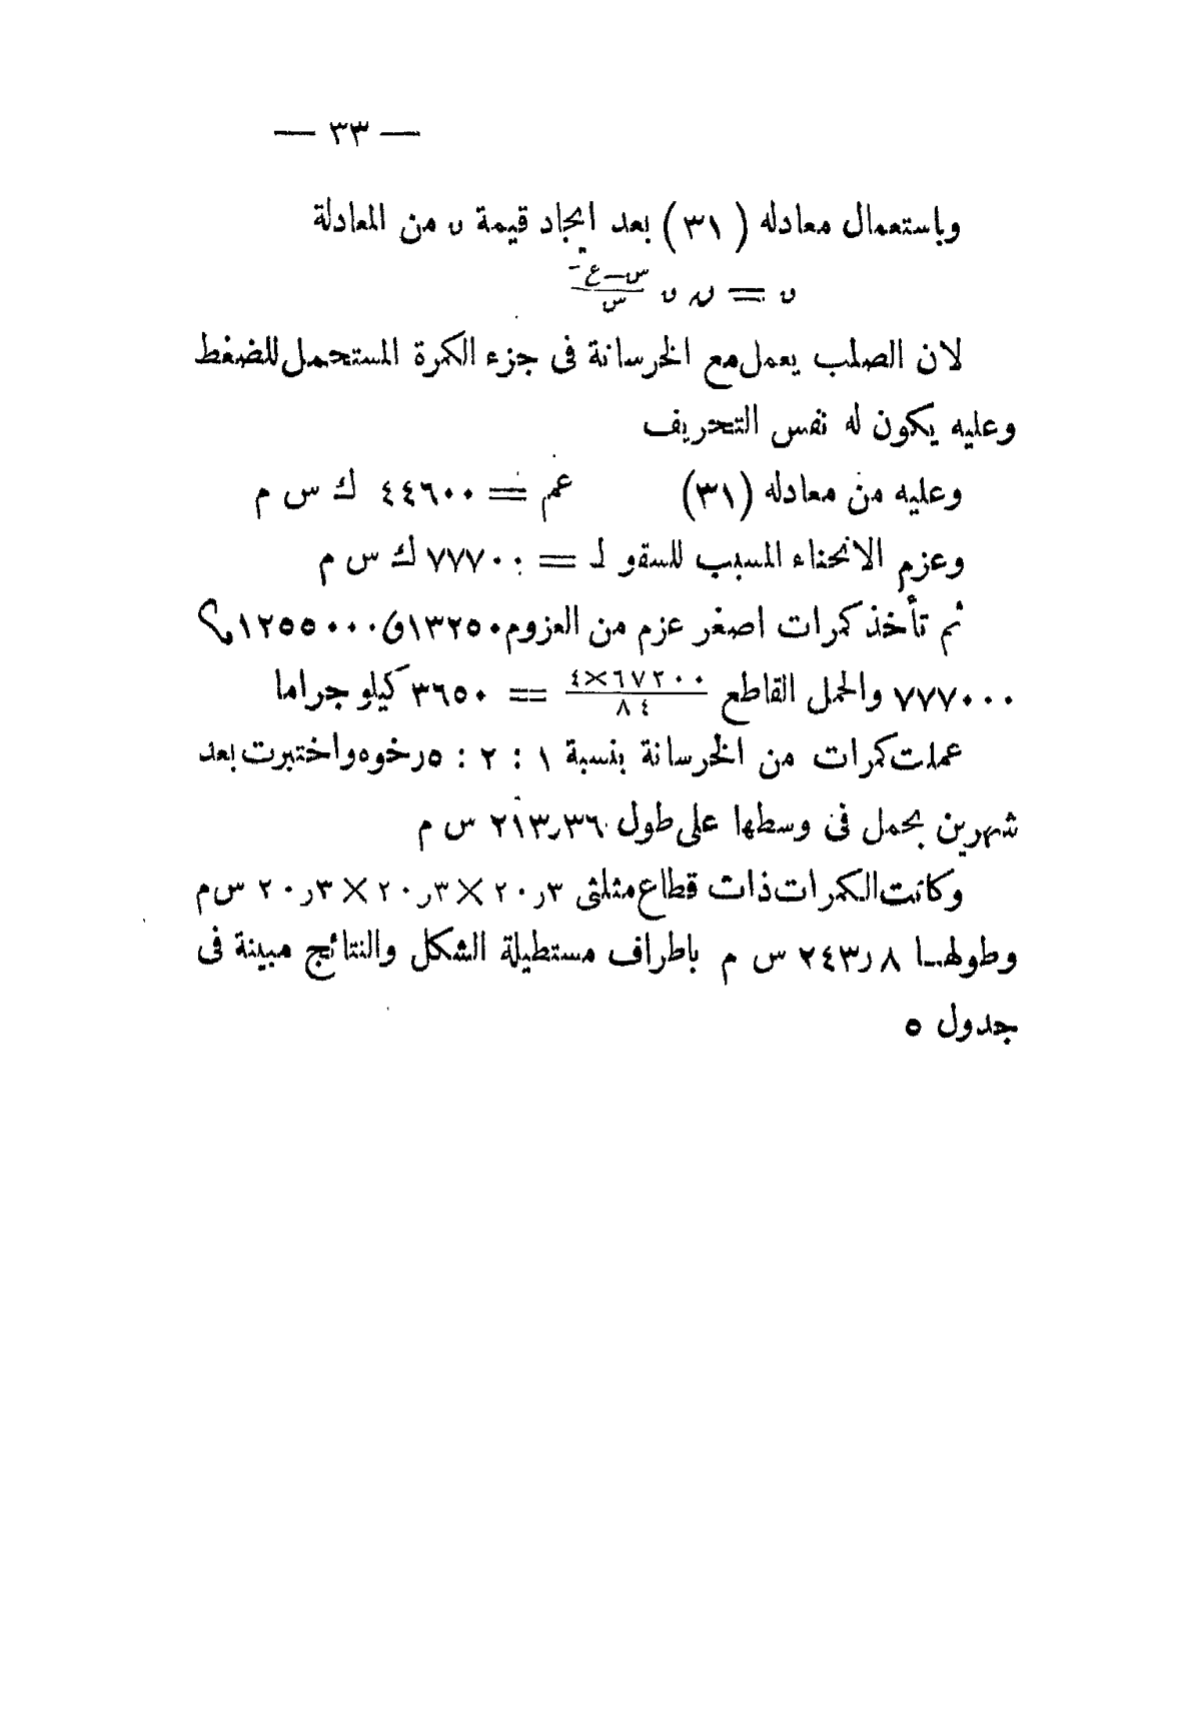 — ٣٣ —
وباستعمال معادله (٣١) بعد ايجاد قيمة ں من المعادلة
ں = ں س–ع / س
لان الصلب يعمل مع الخرسانة فى جزء الكمرة المستحمل للضغط
وعليه يكون له نفس التحريف
وعليه من معادله (٣١) عم = ٤٤٦٠٠ ك س م
وعزم الانحناء المسبب للسقو لـ = ٧٧٧٠٠ ك س م
ثم تأخذ كمرات اصغر عزم من العزوم ١٣٢٥٠ و ١٢٥٥٠٠٠
٧٧٧٠٠٠ والحمل القاطع ٦٧٢٠٠×٤ / ٨٤ = ٣٦٥٠ كيلو جراما
عملت كمرات من الخرسانة بنسبة ١ : ٢ : ٥ رخوه واختبرت بعد
شهرين بحمل فى وسطها على طول ٢١٣٫٣٦ س م
وكانت الكمرات ذات قطاع مثلثى ٢٠٫٣ × ٢٠٫٣ × ٢٠٫٣ س م
وطولهـا ٢٤٣٫٨ س م باطراف مستطيلة الشكل والنتائج مبينة فى
جدول ٥